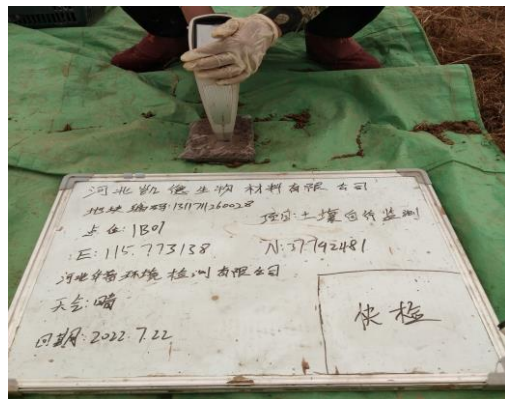 河北凯德生物材料有限公司
地块编码:1311711260028
项目:土壤自行监测
点位:1B01
E:115.773138 N:37.792481
河北华普环境检测有限公司
天气:晴
快检
日期:2022.7.22